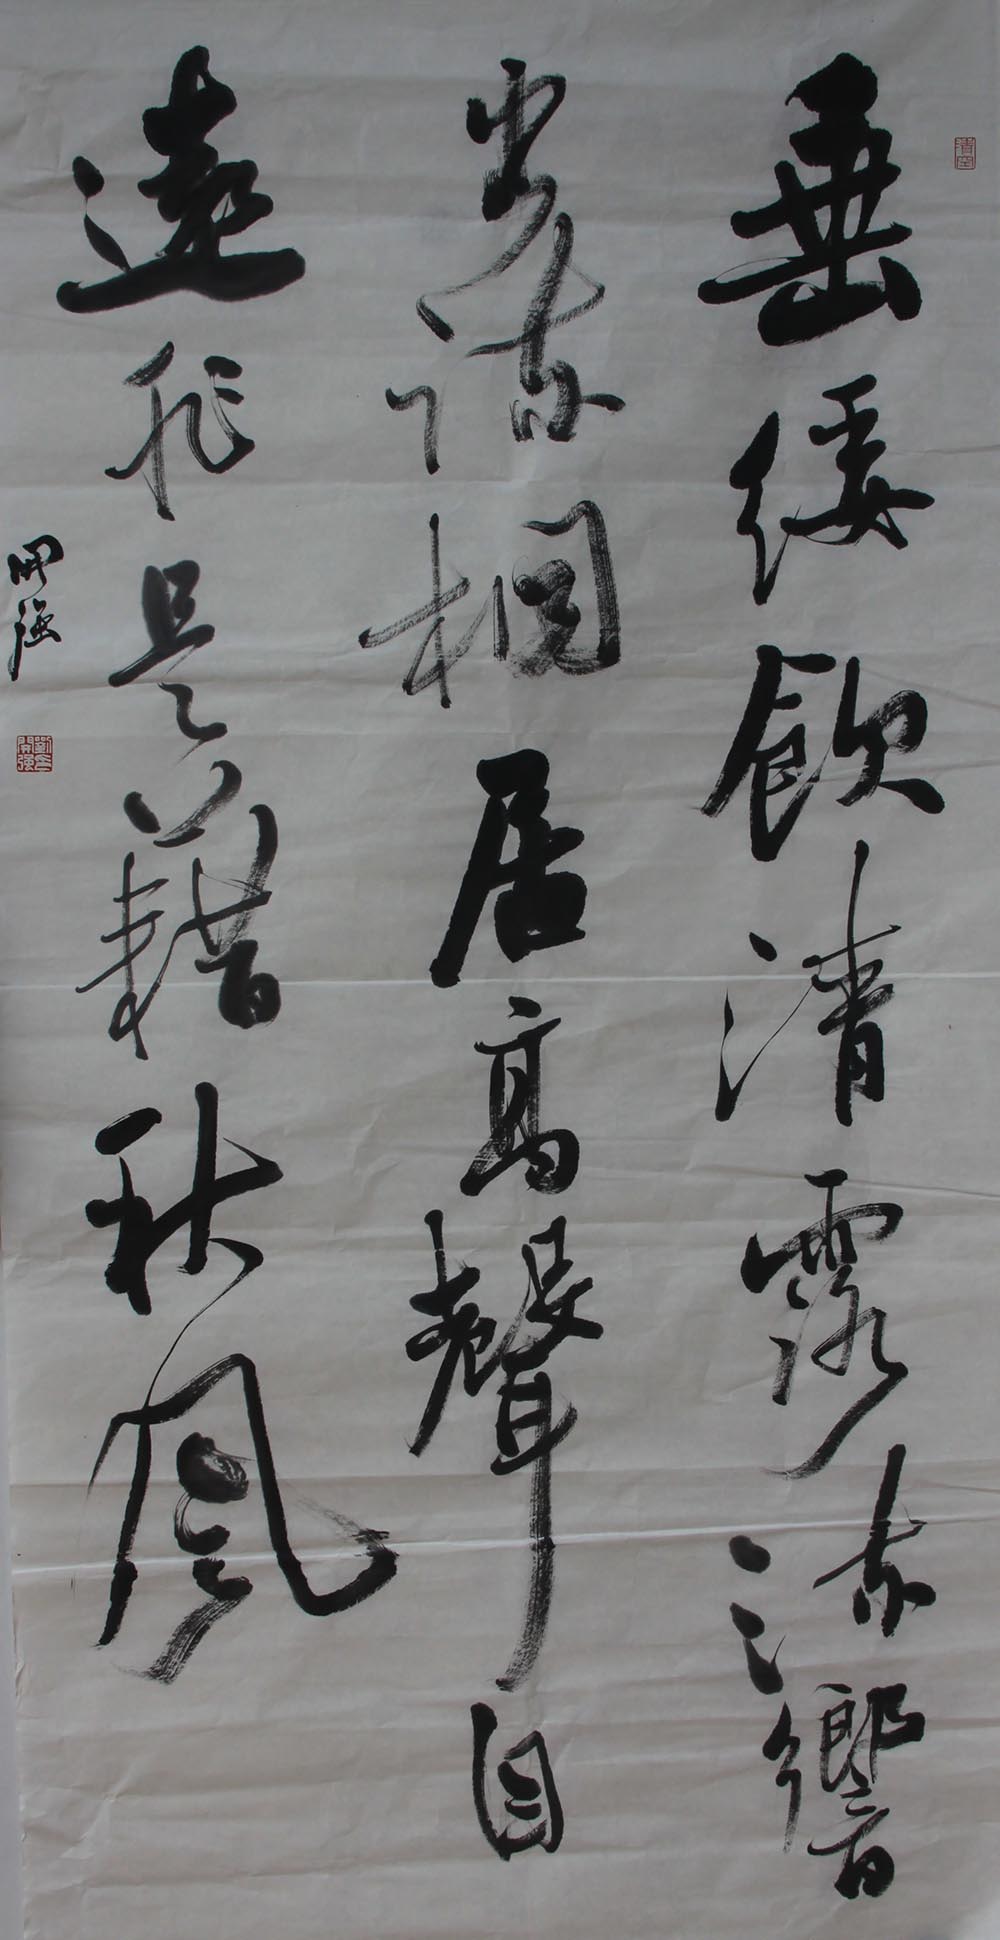 垂緌飲清露流響
出疎桐居高聲自
遠非是藉秋風
開强